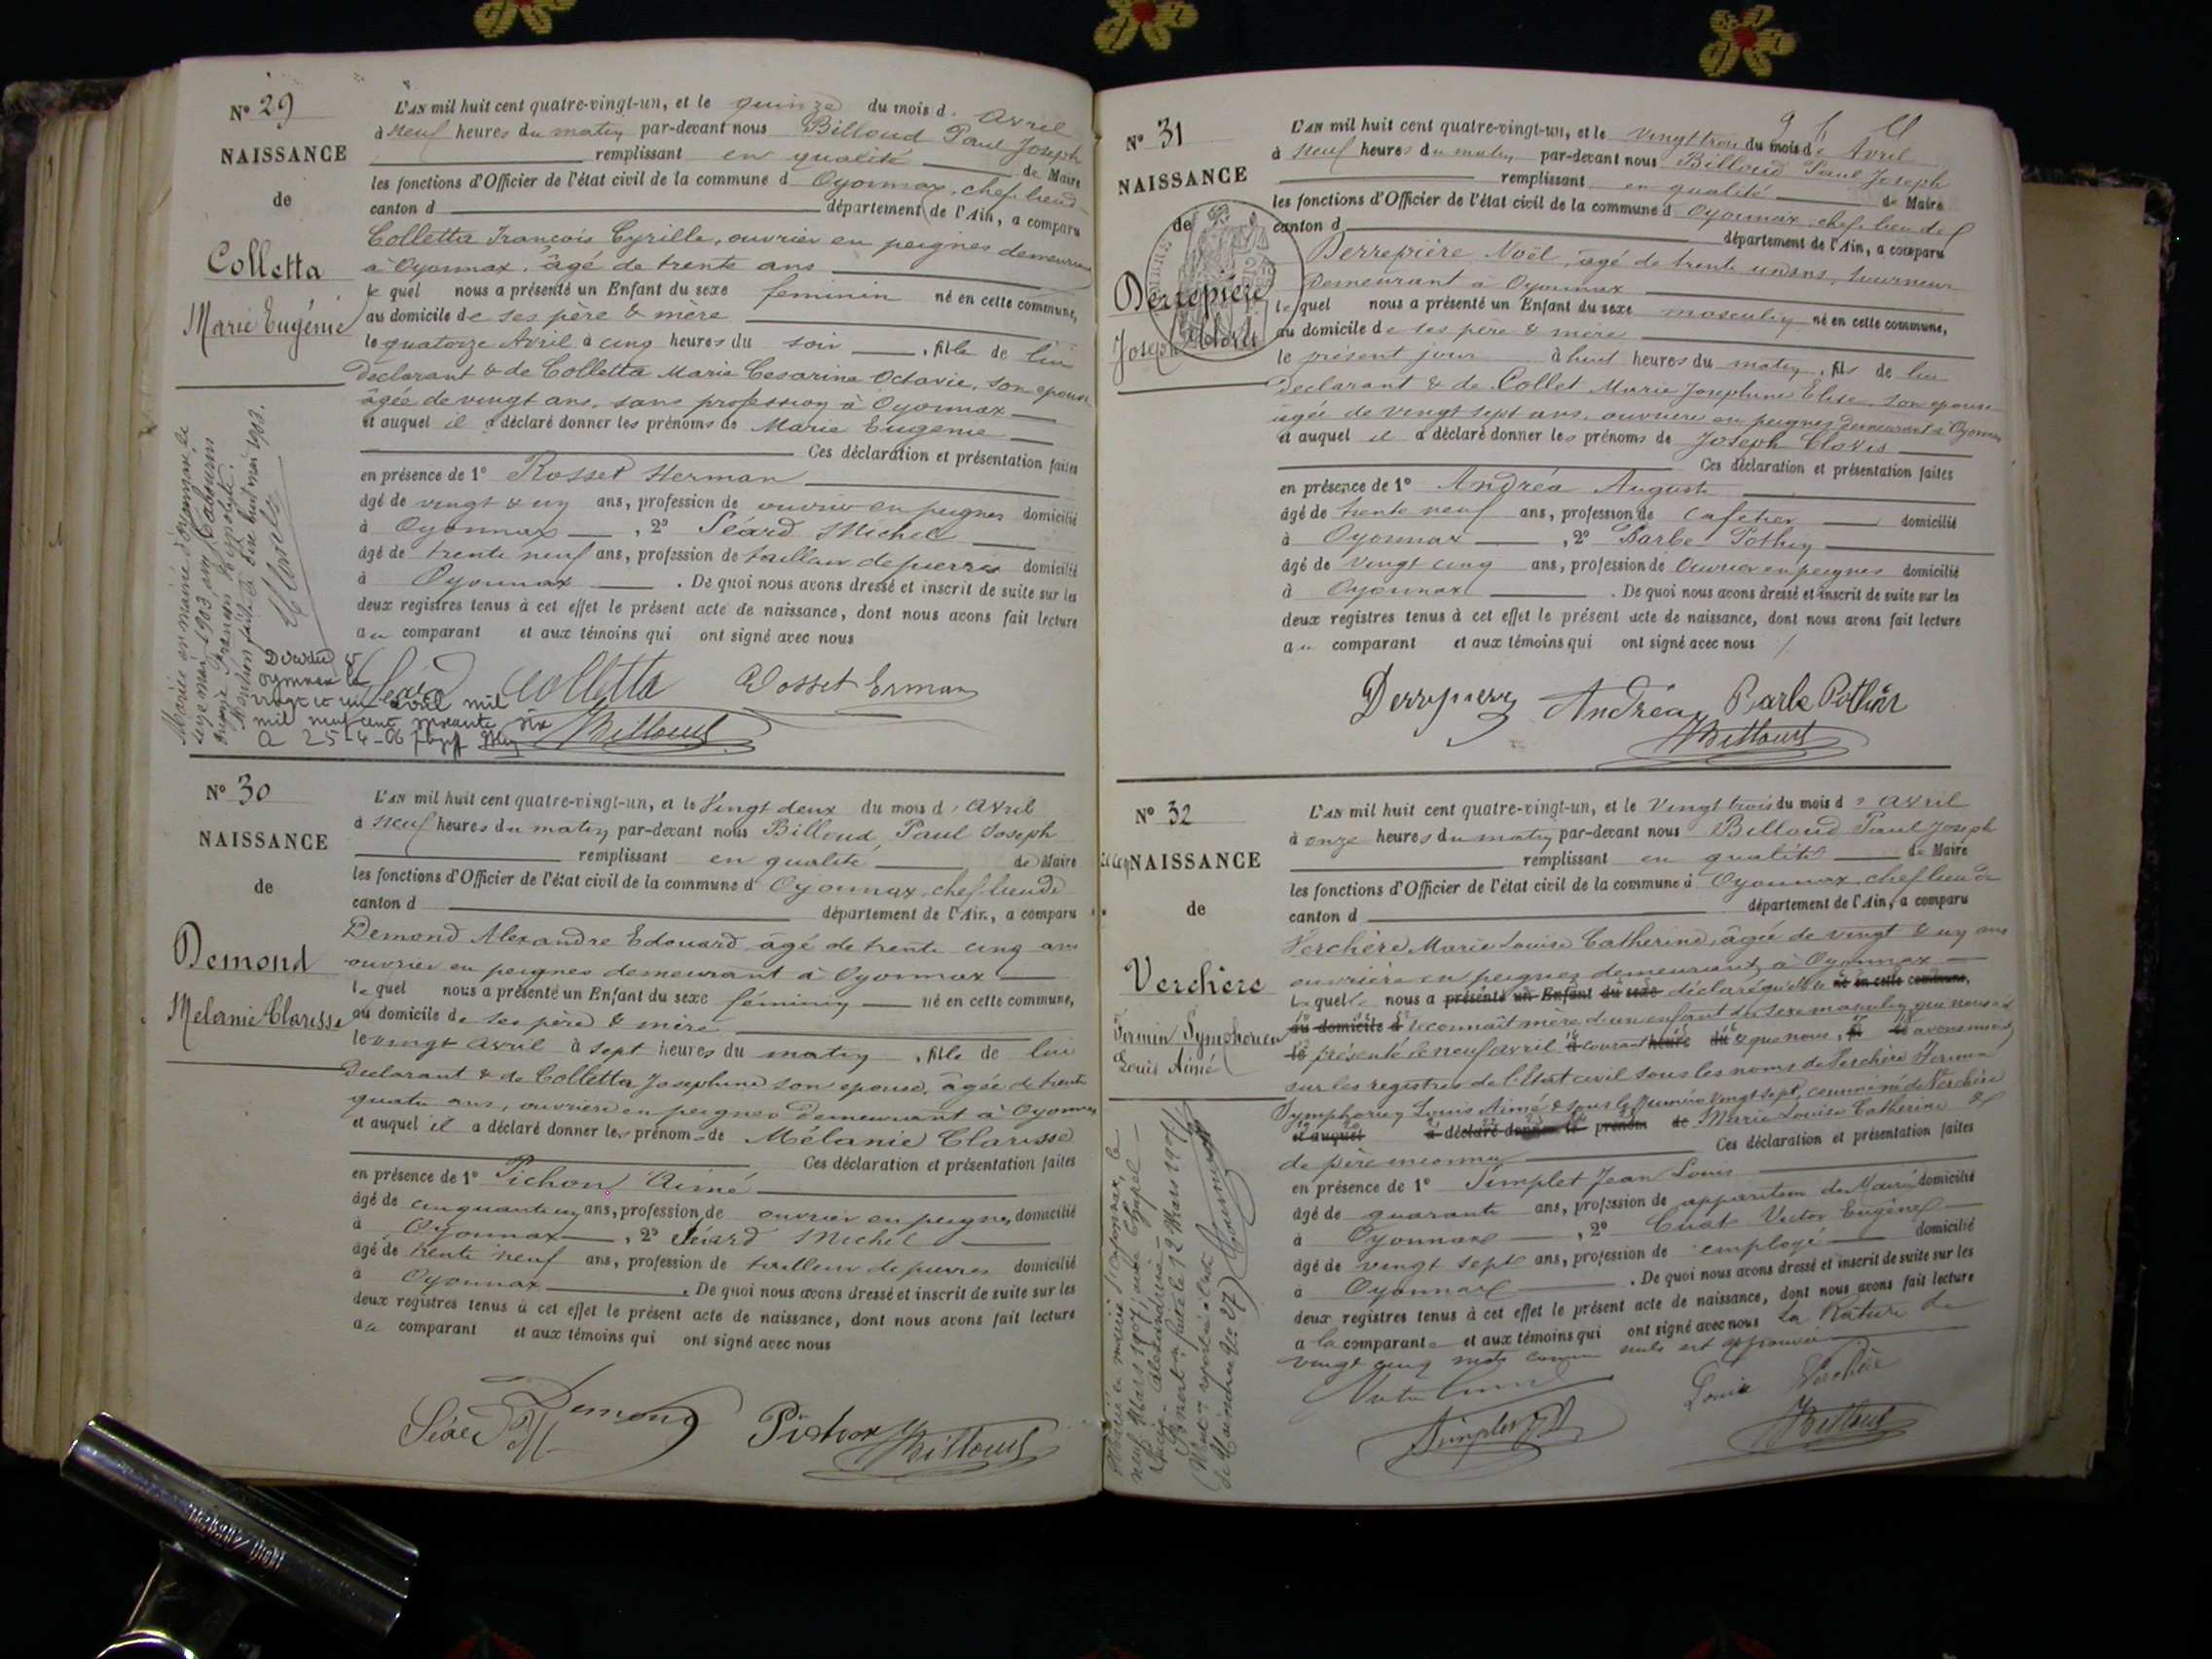 N° 29
NAISSANCE
de
Colletta
Marie Eugénie
L'AN mil huit cent quatre-vingt-un, et le quinze du mois d' Avril
à neuf heures du matin par-devant nous Billoud Paul Joseph
remplissant en qualité de Maire
les fonctions d'Officier de l'état civil de la commune d Oyonnax, chef-lieu d
canton d département de l'Ain, a comparu
Colletta François Cyrille, ouvrier en peignes demeurant
à Oyonnax, âgé de trente ans
le quel nous a présenté un Enfant du sexe feminin né en cette commune,
au domicile de ses père & mère
le quatorze Avril à cinq heures du soir, fille de lui
declarant & de Colletta Marie Cesarine Octavie, son epouse
âgée de vingt ans, sans profession à Oyonnax
et auquel il a déclaré donner les prénoms de Marie Eugenie
Ces déclaration et présentation faites
en présence de 1° Rosset Herman
âgé de vingt & un ans, profession de ouvrier en peignes domicilié
à Oyonnax, 2° Séard Michel
âgé de trente neuf ans, profession de tailleur de pierres domicilié
à Oyonnax. De quoi nous avons dressé et inscrit de suite sur les
deux registres tenus à cet effet le présent acte de naissance, dont nous avons fait lecture
au comparant et aux témoins qui ont signé avec nous
Mariée en mairie d'Oyonnax, le
seize mai 1903, avec Cabourin
Mention faite le dix huit mai 1903.
Décédée à
Oyonnax le
vingt et un avril mil
mil neuf cent soixante six
Séard Colletta Rosset Erman
Billoud
N° 30
NAISSANCE
de
Demond
Melanie Clarisse
L'AN mil huit cent quatre-vingt-un, et le Vingt deux du mois d' Avril
à neuf heures du matin par-devant nous Billoud Paul Joseph
remplissant en qualité de Maire
les fonctions d'Officier de l'état civil de la commune d Oyonnax, chef-lieu de
canton d département de l'Ain, a comparu
Demond Alexandre Edouard âgé de trente cinq ans
ouvrier en peignes demeurant à Oyonnax
le quel nous a présenté un Enfant du sexe féminin né en cette commune,
au domicile de ses père & mère
le vingt Avril à sept heures du matin, fille de lui
Declarant & de Colletta Josephine son epouse, âgée de trente
quatre ans, ouvrière en peignes demeurant à Oyonnax
et auquel il a déclaré donner les prénom de Mélanie Clarisse
Ces déclaration et présentation faites
en présence de 1° Pichon Aimé
âgé de cinquante un ans, profession de ouvrier en peignes domicilié
à Oyonnax, 2° Séard Michel
âgé de trente neuf ans, profession de tailleur de pierres domicilié
à Oyonnax. De quoi nous avons dressé et inscrit de suite sur les
deux registres tenus à cet effet le présent acte de naissance, dont nous avons fait lecture
au comparant et aux témoins qui ont signé avec nous
Séard M Demond Pichon
Billoud
N° 31
NAISSANCE
de
Derrepière
Joseph Clovis
L'AN mil huit cent quatre-vingt-un, et le vingt trois du mois d' Avril
à neuf heures du matin par-devant nous Billoud Paul Joseph
remplissant en qualité de Maire
les fonctions d'Officier de l'état civil de la commune d Oyonnax, chef-lieu de
canton d département de l'Ain, a comparu
Derrepière Noël, âgé de trente un ans, tourneur
demeurant à Oyonnax
le quel nous a présenté un Enfant du sexe masculin né en cette commune,
au domicile de ses père & mère
le présent jour à huit heures du matin, fils de lui
declarant & de Collet Marie Josephine Elise, son epouse
agée de vingt sept ans, ouvriere en peignes demeurant à Oyonnax
et auquel il a déclaré donner les prénoms de Joseph Clovis
Ces déclaration et présentation faites
en présence de 1° Andréa Auguste
âgé de trente neuf ans, profession de cafetier domicilié
à Oyonnax, 2° Barbe Pothin
âgé de vingt cinq ans, profession de Ouvrier en peignes domicilié
à Oyonnax. De quoi nous avons dressé et inscrit de suite sur les
deux registres tenus à cet effet le présent acte de naissance, dont nous avons fait lecture
au comparant et aux témoins qui ont signé avec nous
Derrepierre Andréa Barbe Pothin
Billoud
N° 32
NAISSANCE
de
Verchère
Firmin Symphorien
Louis Aimé
L'AN mil huit cent quatre-vingt-un, et le Vingt trois du mois d' Avril
à onze heures du matin par-devant nous Billoud Paul Joseph
remplissant en qualité de Maire
les fonctions d'Officier de l'état civil de la commune d Oyonnax, chef lieu de
canton d département de l'Ain, a comparu
Verchère Marie Louise Catherine, âgée de vingt & un ans
ouvrière en peignes demeurant à Oyonnax
laquelle nous a présenté un Enfant du sexe déclaré qu'elle né en cette commune,
au domicile d reconnaît mère d'un enfant du sexe masculin qui nous a été
le présenté le neuf avril à courant heures du & que nous, fi de avons inscrit
sur les registres de l'état civil sous les noms de Verchère Firmin
Symphorien Louis Aimé & sous le numéro vingt sept, comme né de Verchère
et auquel a déclaré donner le prénom de Marie Louise Catherine &
de père inconnu Ces déclaration et présentation faites
en présence de 1° Simplet Jean Louis
âgé de quarante ans, profession de appariteur de Mairie domicilié
à Oyonnax, 2° Cuat Victor Eugène
âgé de vingt sept ans, profession de employé domicilié
à Oyonnax. De quoi nous avons dressé et inscrit de suite sur les
deux registres tenus à cet effet le présent acte de naissance, dont nous avons fait lecture
à la comparante et aux témoins qui ont signé avec nous La Rature de
vingt cinq mots comme nuls est approuvée
Marié en mairie d'Oyonnax, le
neuf Mars 1907, avec
Mention faite le 12 Mars 1907
de Naissance No 27)
Louise Verchère
Simplet J L
Billoud